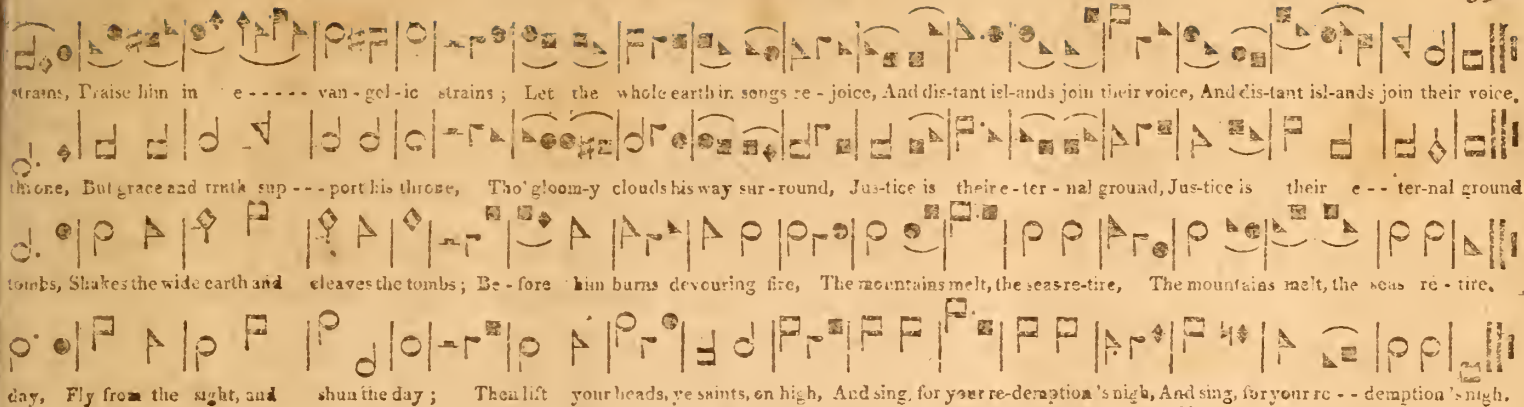 strains, Praise him in e - - - - - van - gel - ic strains ; Let the whole earth in songs re - joice, And dis-tant isl-ands join their voice, And dis-tant isl-ands join their voice.
throne, But grace and truth sup - - - port his throne, Tho' gloom-y clouds his way sur - round, Jus-tice is their e - ter - nal ground, Jus-tice is their e - - ter-nal ground
tombs, Shakes the wide earth and cleaves the tombs ; Be - fore him burns devouring fire, The mountains melt, the seas re-tire, The mountains melt, the seas re - tire.
day, Fly from the sight, and shun the day ; Then lift your heads, ye saints, on high, And sing, for your re-demption 's nigh, And sing, for your re - - demption 's nigh.